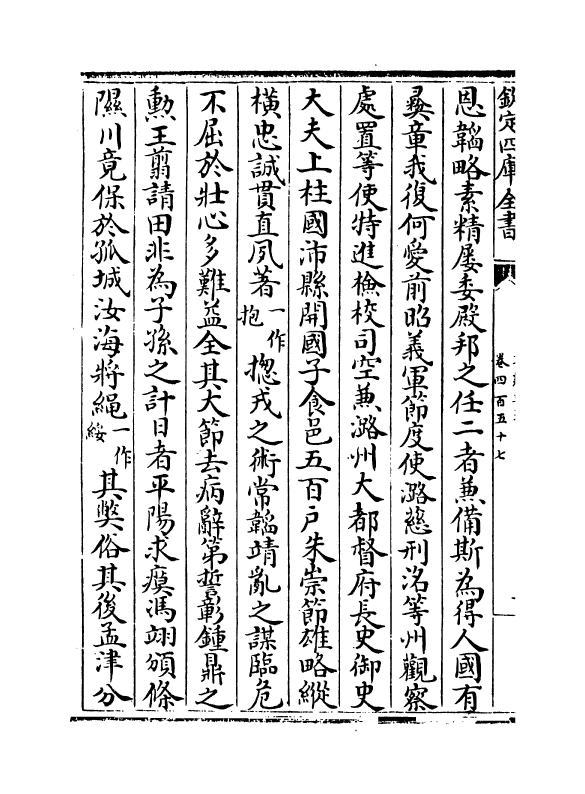 欽定四庫全書
卷四百五十七
恩韜略素精屡委殿邦之任二者兼備斯為得人國有
彛章我復何愛前昭義軍節度使潞慈刑洺等州觀察
處置等使特進檢校司空兼潞州大都督府長史御史
大夫上柱國沛縣開國子食邑五百户朱崇節雄略縱
横忠誠貫直夙著一作抱㧾戎之術常韜靖亂之謀臨危
不屈於壯心多難益全其大節去病辭第誓彰鍾鼎之
勲王翦請田非為子孫之計日者平陽求瘼馮翊頒條
隰川竟保於孤城汝海將繩一作綏其獘俗其後孟津分